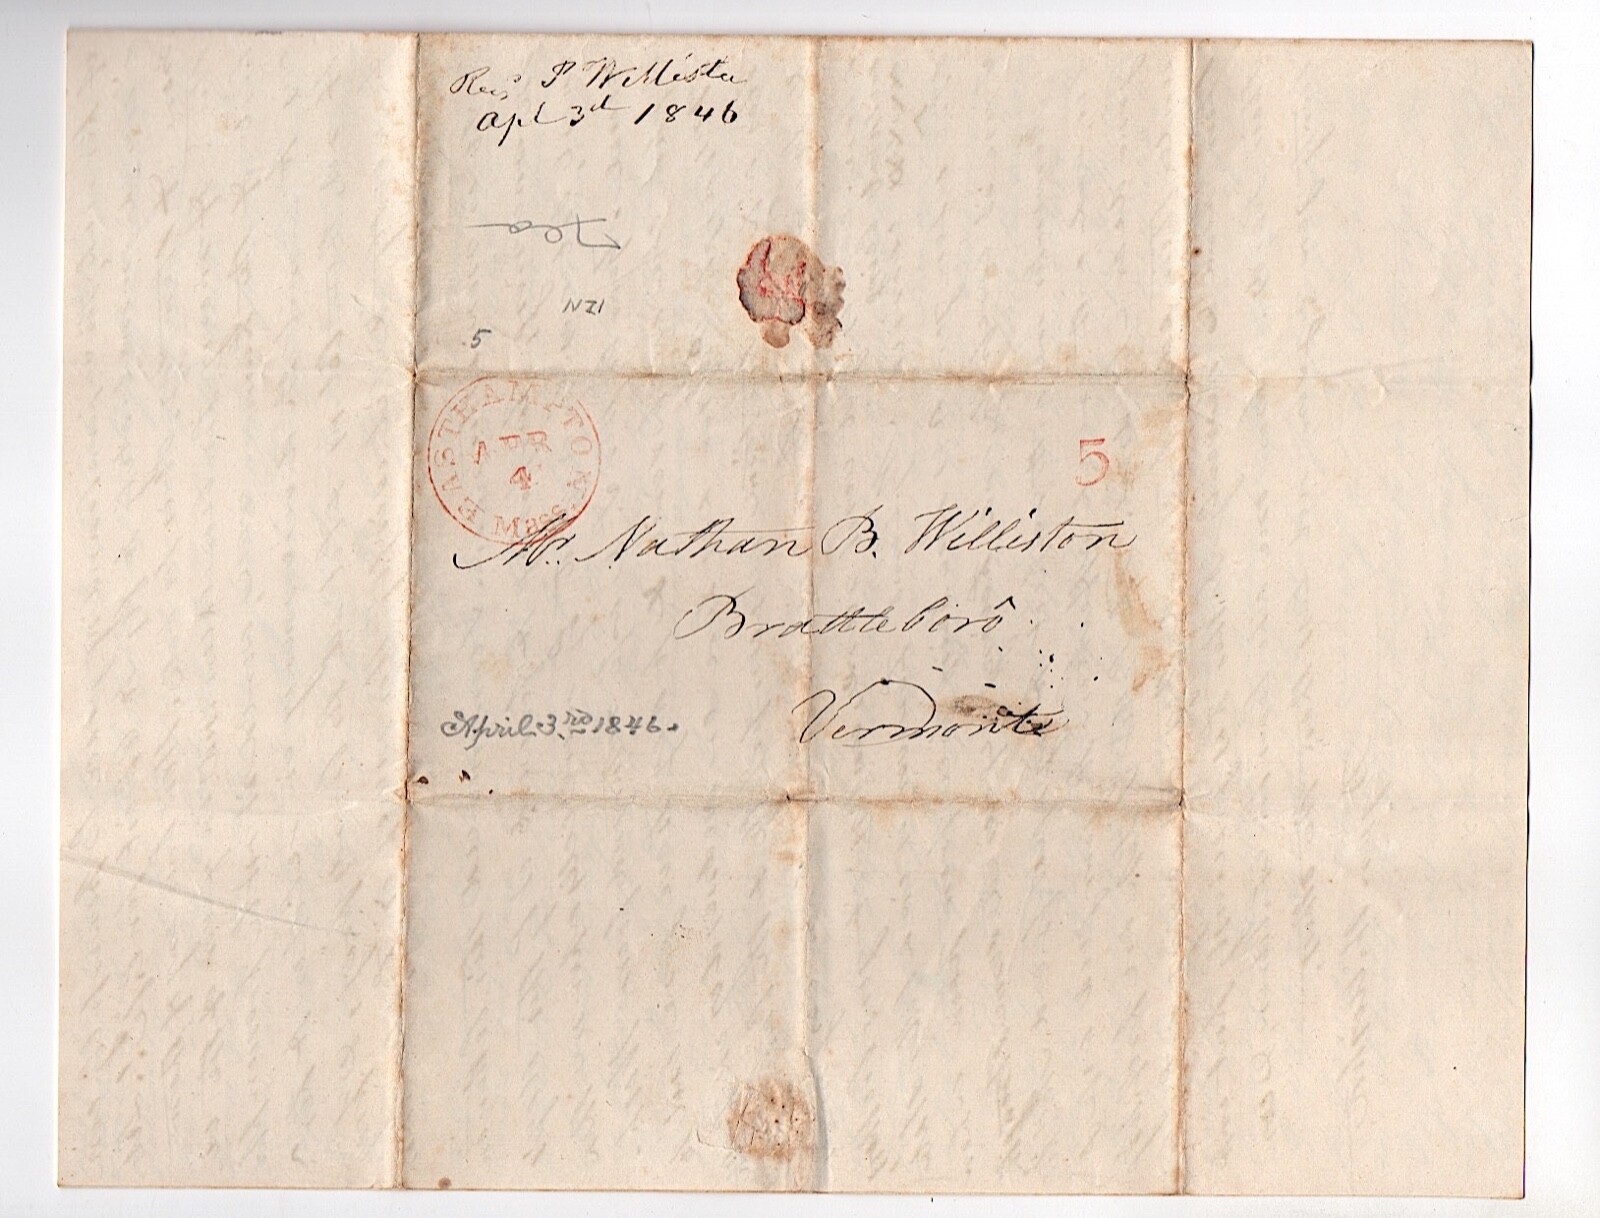 P Williston
Apl 3d 1846
5
EASTHAMPTON
APR
4
Mass.
5
Mr. Nathan B. Williston
Brattleboro
Vermont
April 3rd 1846.